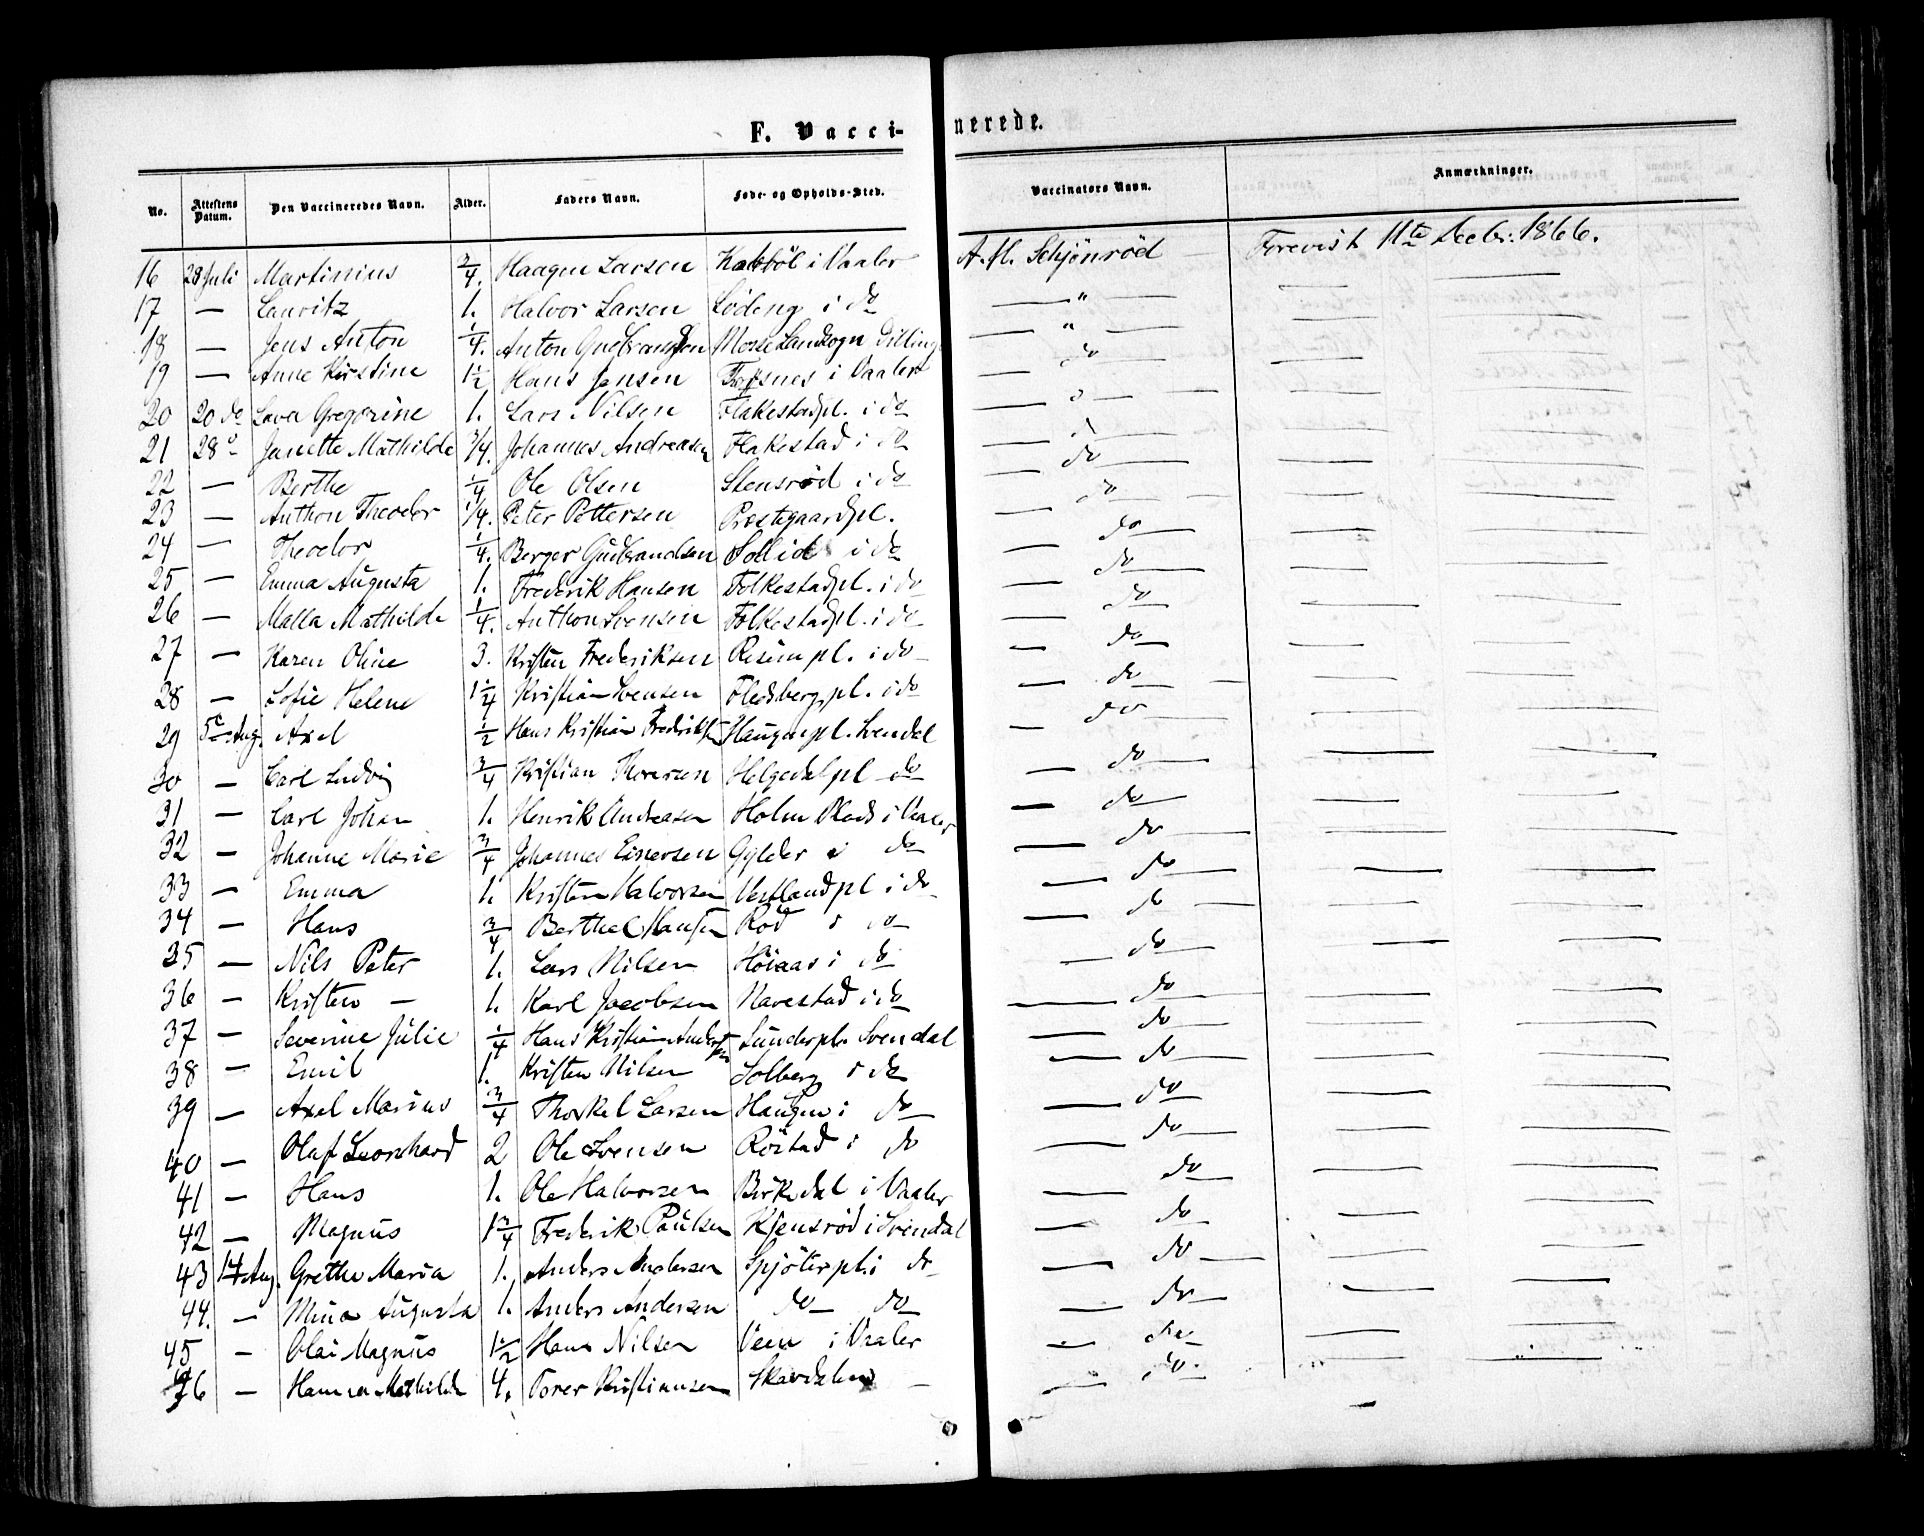 F. Vaccinerede.
No. Attestens Datum. Den Vaccineredes Navn. Alder. Faders Navn. Føde- og Opholds-Sted. Vaccinators Navn. Anmærkninger.
16 28 Juli Martinius 3/4. Haagen Larsen i Vaaler A. H. Schjönröd Forevist 11te Decbr. 1866.
17 — Lauritz 1. Halvor Larsen Lödeng i do — " —
18 — Jens Anton 1/4. Anton Gudbrandsen Mosse Landsogn Dilling — " —
19 — Anne Kirstine 1 1/2 Hans Jensen i Vaaler — do —
20 20 do Lava Gregorine 1. Lars Nilsen Flakestadpl. i do
21 28 " Janette Mathilde 3/4. Johannes Andreasen Flakestad i do — do —
22 — Berthe 1/4 Ole Olsen Stensrød i do — do —
23 — Anthon Theodor 1/4. Peter Pettersen Prestegaardpl. — do —
24 — Theodor 1/4. Berger Gudbrandsen Sollid i do — do —
25 — Emma Augusta 1. Frederik Hansen Folkestadpl. i do — do —
26 — Malla Mathilde 1/4. Anthon Svensen Folkestadpl. i do — do —
27 — Karen Oline 3. Kristen Frederiksen Risumpl. i do — do —
28 — Sofie Helene 1 1/4 Kristian Svensen Fledsberg pl. i do — do —
29 5te Aug. Axel 1/2 Hans Kristian Frederiksen Haugenpl. Svendal — do —
30 — Carl Ludvig 3/4 Kristian Thoresen Helgedalpl do — do —
31 — Carl Johan 1. Henrik Andreasen Holm Plads i Vaaler — do —
32 — Johanne Marie 3/4 Johannes Einersen Gylder i do — do —
33 — Emma 1. Kristen Halvorsen Vestlandpl i do — do —
34 — Hans 3/4 Berthel Hansen Rød i do — do —
35 — Nils Peter 1. Lars Nilsen Höiaas i do — do —
36 — Kristen — 1. Karl Jacobsen Navestad i do — do —
37 — Severine Julie 1/4 Hans Kristian Andersen Sunderpl. Svendal — do —
38 — Emil 1. Kristen Nilsen Solberg i do — do —
39 — Axel Marius 3/4 Thorkel Larsen Haugen i do — do —
40 — Olaf Leonhard 2 Ole Svensen Röstad i do — do —
41 — Hans 1. Ole Halvorsen Birkedal i Vaaler — do —
42 — Magnus 1 3/4 Frederik Paulsen Kjensröd i Svendal — do —
43 14 Aug. Grethe Maria 1. Anders Andersen Spjöterpl. i do — do —
44. — Mina Augusta 1. Anders Andersen do do — do —
45 — Olai Magnus 1 1/2 Hans Nilsen Veen i Vaaler — do —
46 — Hanna Mathilde 4. Torer Kristiansen Skardalen — — do.